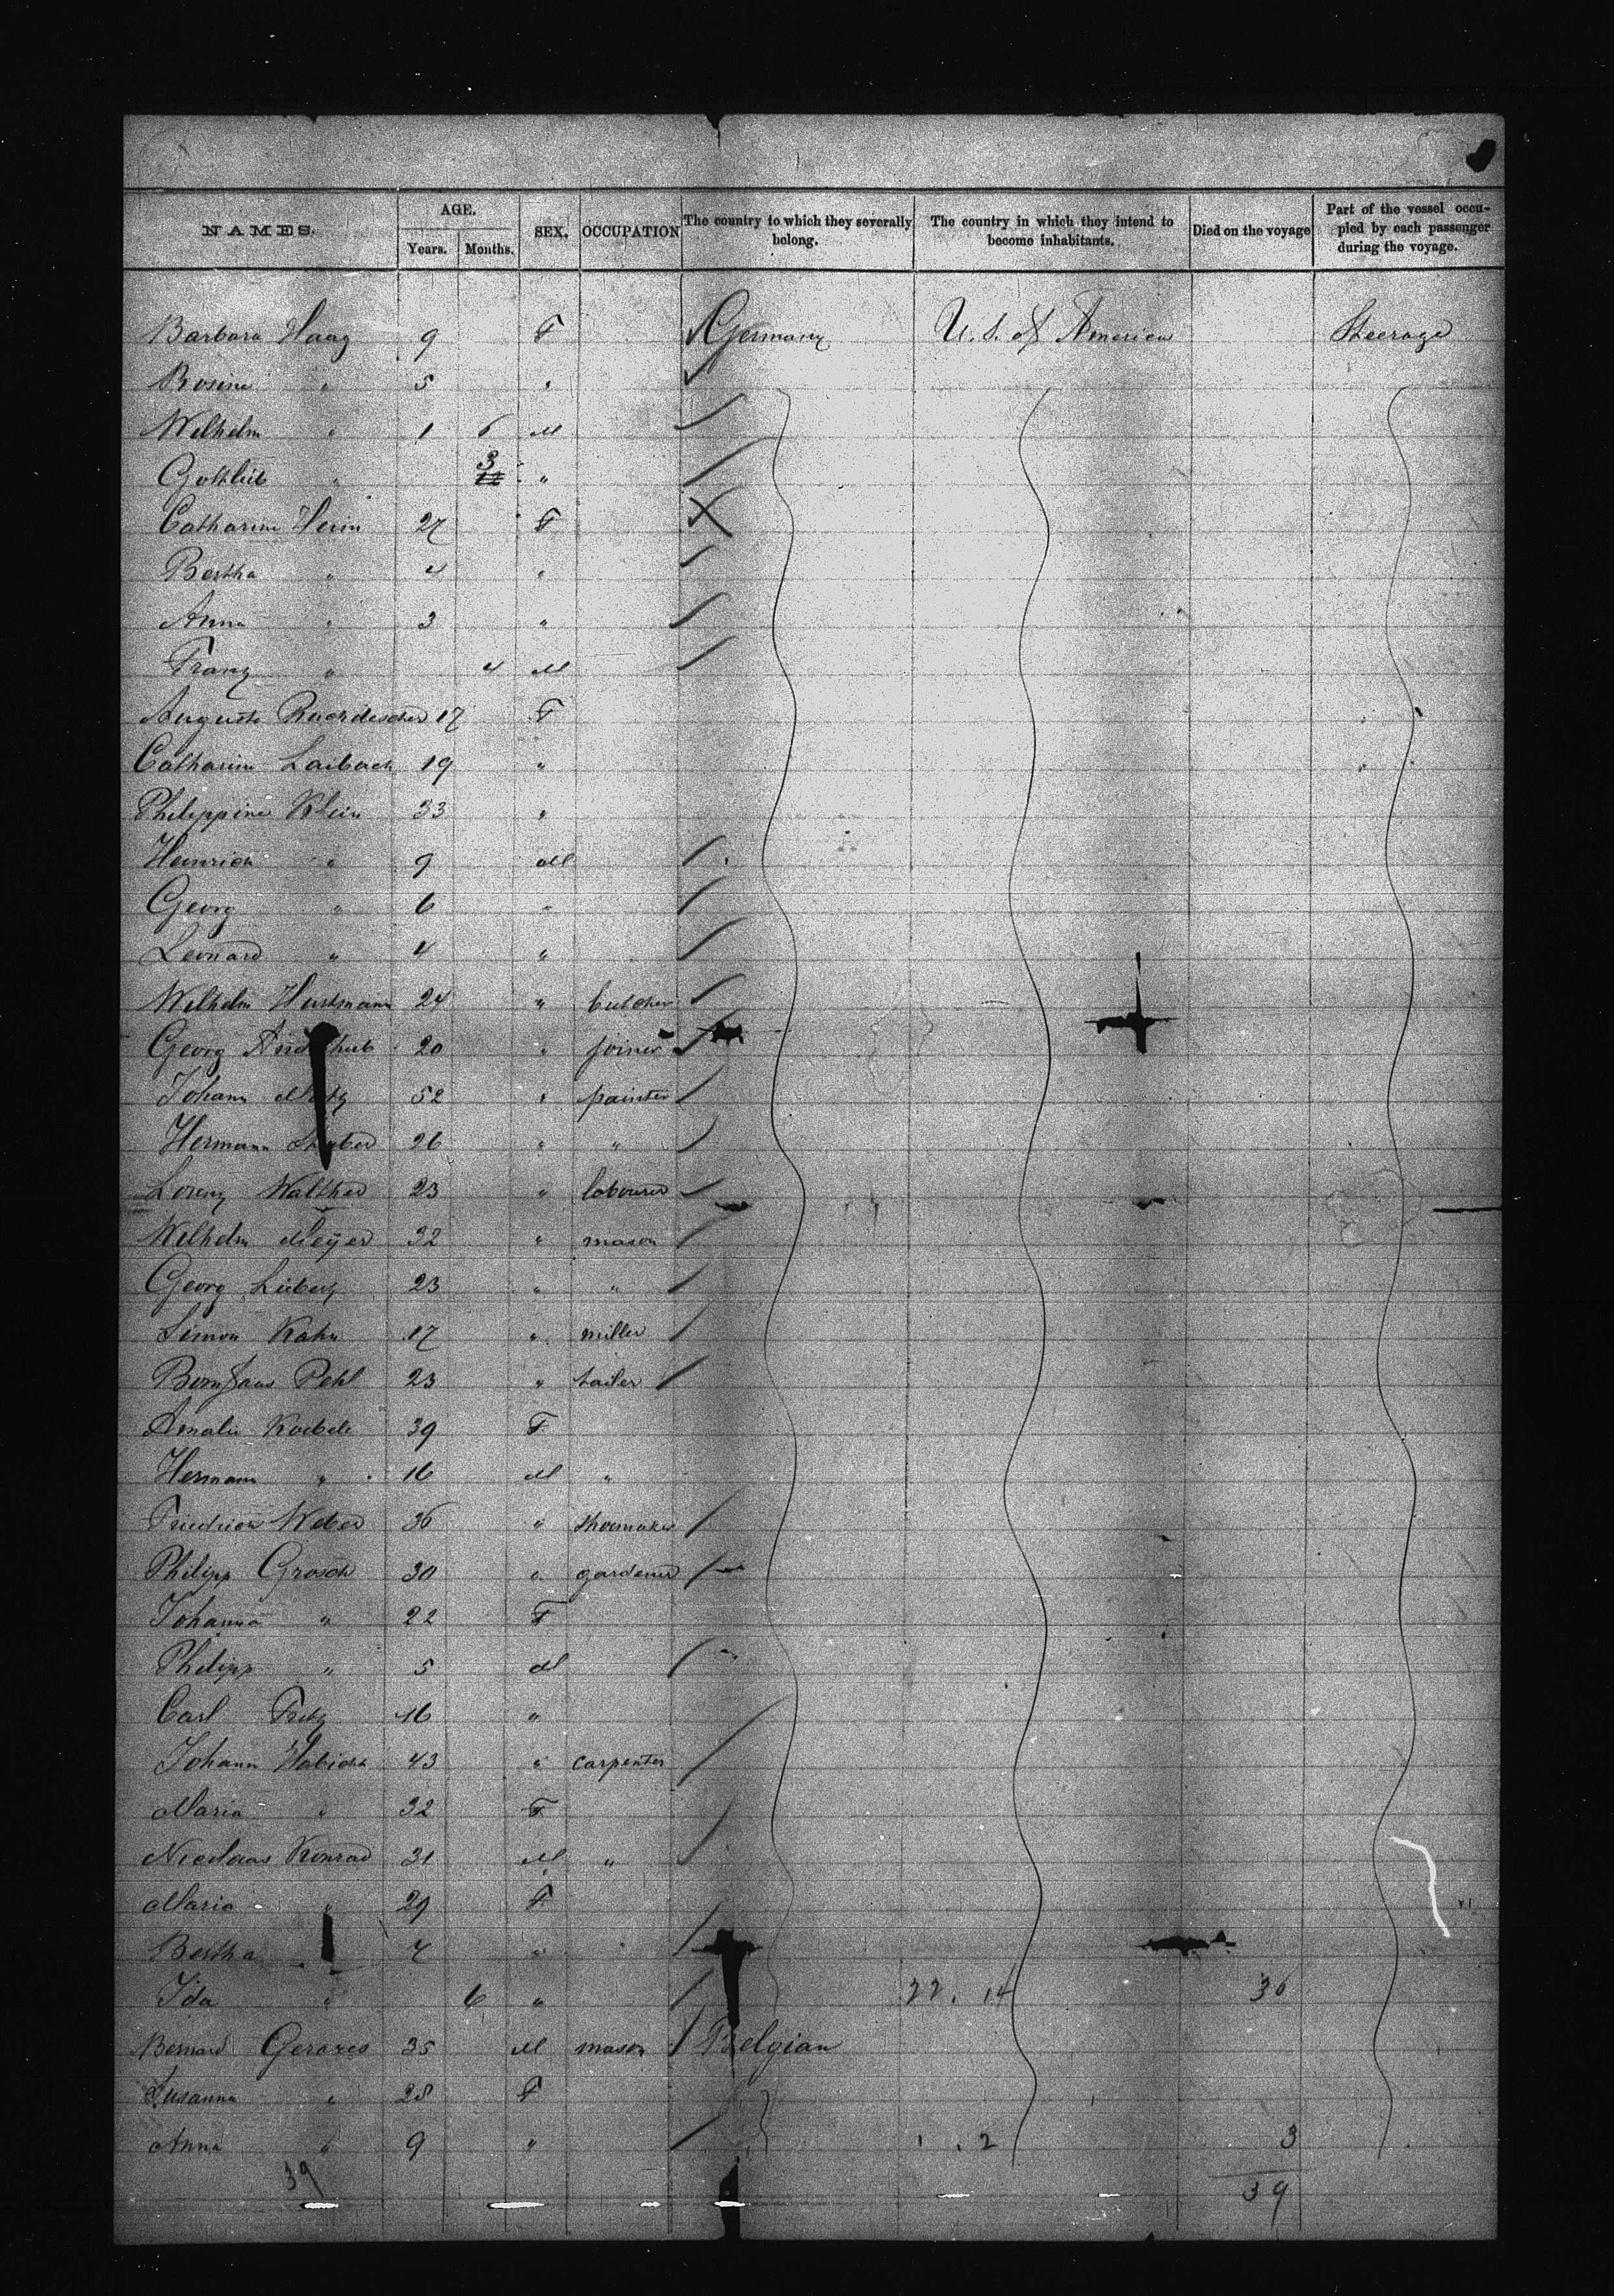 NAMES. AGE. SEX. OCCUPATION The country to which they severally belong. The country in which they intend to become inhabitants. Died on the voyage Part of the vessel occupied by each passenger during the voyage.
Years. Months.
Barbara Haag 9 F Germany U. S. of America Steerage
Rosine " 5 "
Wilhelm " 1 6 M
Gottlieb " 3 "
Catharine 27 F
Bertha " 4 "
Anna " 3 "
Franz " 4 M
Auguste 17 F
Catharine Laibach 19 "
Philippine Klein 33 "
Heinrich " 9 M
Georg " 6 "
Leonard " 4 "
Wilhelm 24 " butcher
Georg 20 " joiner
Johann 52 " painter
Hermann 26 " "
Lorenz Walther 23 " labourer
Wilhelm Meyer 32 " mason
Georg 23 " "
Simon Kahn 17 " miller
Pehl 23 " tailer
Amalie 39 F
Hermann " 16 M "
Friedrich Weber 36 " shoemaker
Philipp Grosch 30 " gardener
Johanna " 22 F
Philipp " 5 M
Carl Fritz 16 "
Johann Habicht 43 " carpenter
Maria " 32 F
Nicolaus Konrad 31 M "
Maria " 29 F
Bertha 7 "
Ida " 6 " 22. 14 36
Bernard Geraxes 35 M mason Belgian
Susanna " 28 F
Anna " 9 " 1. 2 3
39 39